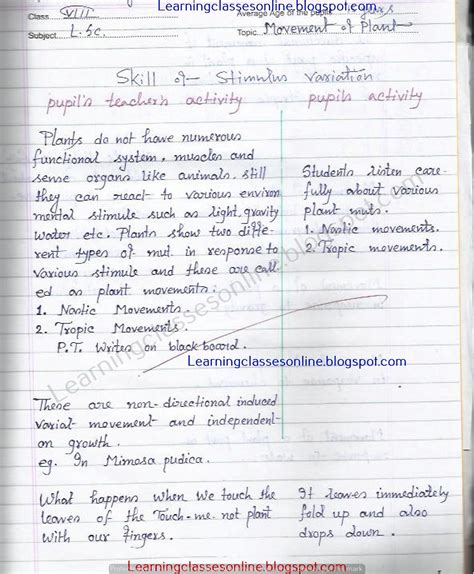 Learningclassesonline.blogspot.com
Class VIII
Average Age of the pupils
Subject L.Sc.
Topic Movement of Plant
Skill of Stimulus Variation
pupil's teacher's activity
pupil's activity
Plants do not have numerous
functional system, muscles and
sense organs like animals. still
they can react to various environ
mental stimule such as light, gravity
water etc. Plants show two diffe-
rent types of mut. in response to
various stimule and these are call-
ed as plant movements.
1. Nastic Movements.
2. Tropic Movements.
P.T. Writes on blackboard.
Students listen care-
fully about various
plant muts.
1. Nastic movements.
2. Tropic movements.
Learningclassesonline.blogspot.com
Learningclassesonline.blogspot.com
These are non-directional induced
variat movement and independent
on growth.
eg. In Mimosa pudica.
What happens when we touch the
leaves of the Touch-me-not plant
with our fingers.
It leaves immediately
fold up and also
drops down.
Learningclassesonline.blogspot.com